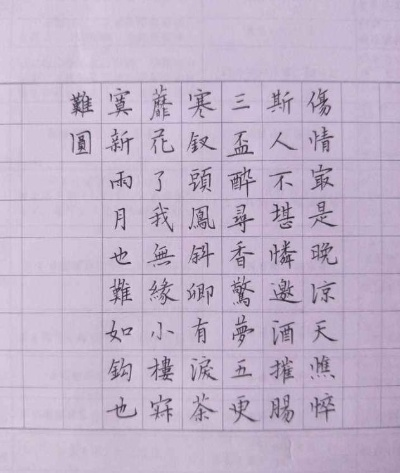 傷情冣是晚涼天憔悴
斯人不堪憐邀酒摧腸
三盃醉尋香驚夢五更
寒釵頭鳳斜卿有淚荼
蘼花了我無緣小樓寂
寞新雨月也難如鈎也
難圓